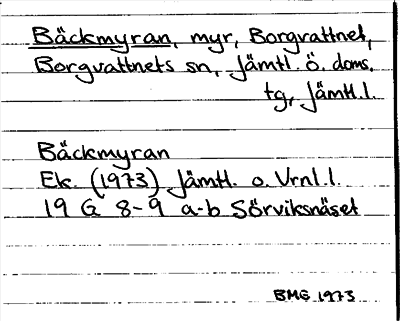 Bäckmyran, myr, Borgvattnet,
Borgvattnets sn, Jämtl. ö. doms.
tg, Jämtl.l.
Bäckmyran
Ek. (1973) Jämtl. o. Vrnl.l.
19 G 8-9 a-b Sörviksnäset
BMG 1973